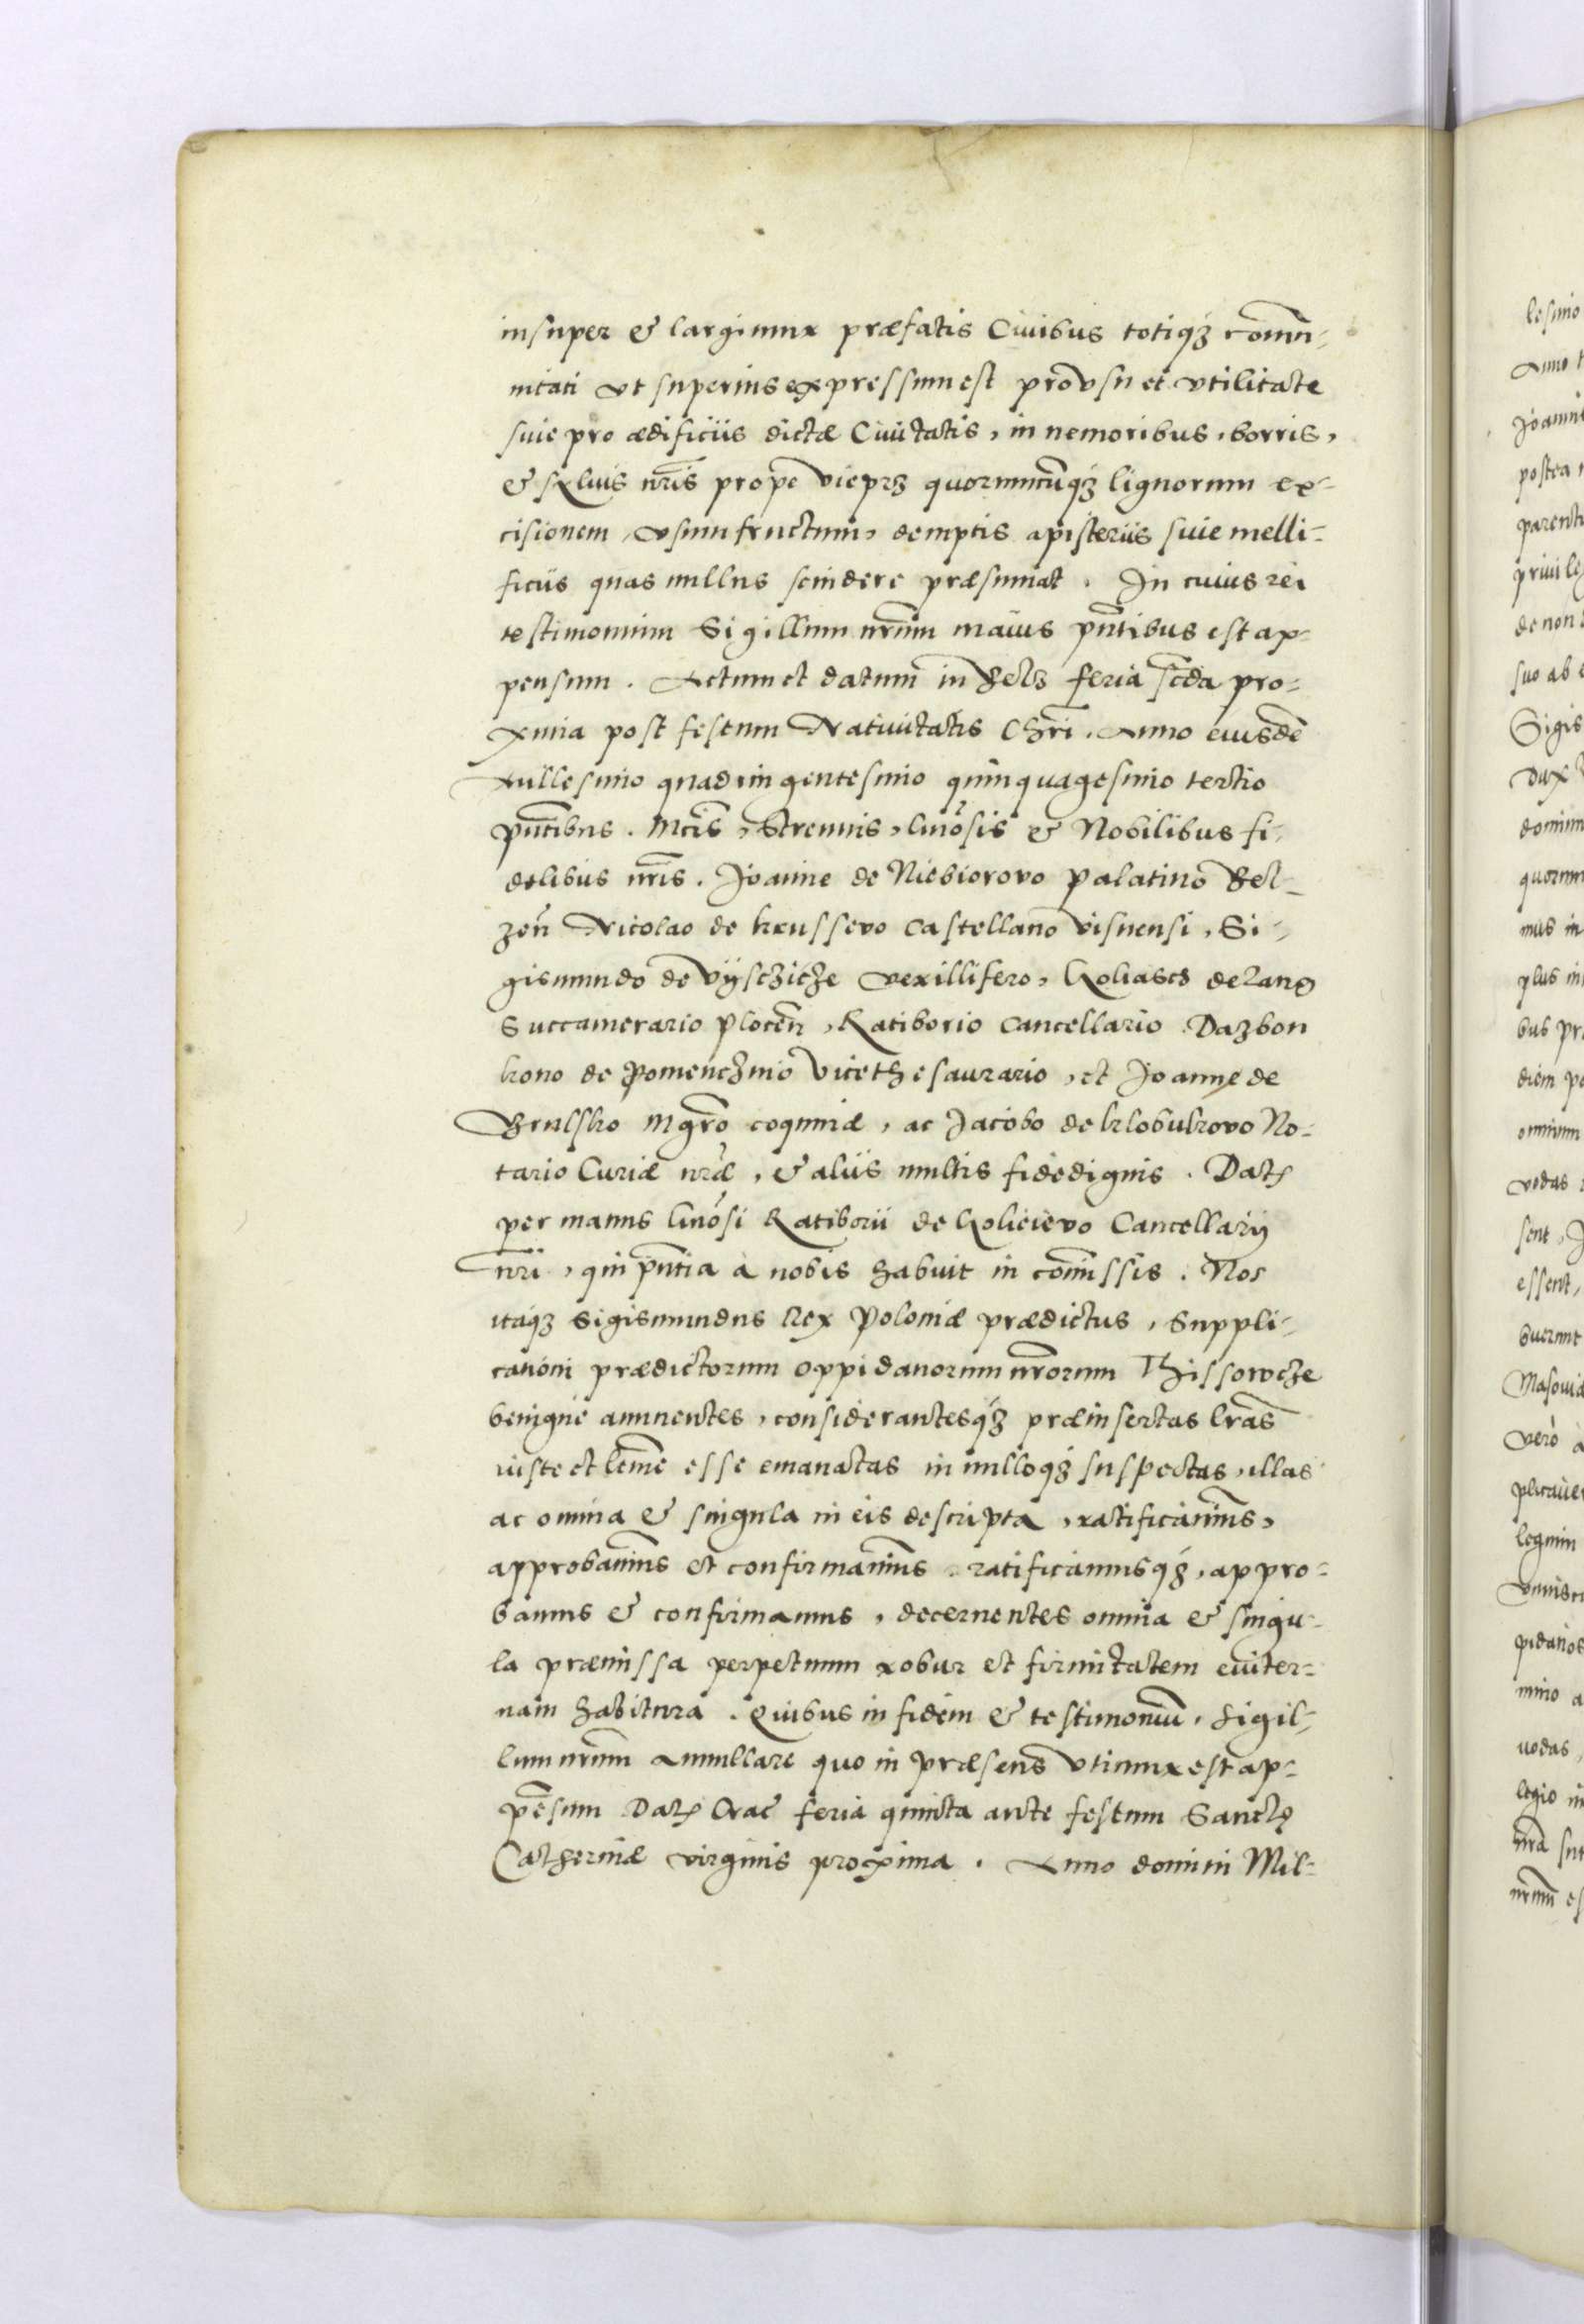 insuper & largimur præfatis Ciuibus totiqꝫ com̄u-
nitati vt superius expressum est pro vsu et vtilitate
siue pro ædificiis dictæ Ciuitatis, in nemoribus, borris,
& syluis nr̄is prope vieprz quorumcūqꝫ lignorum ex-
cisionem, vsumfructum, demptis apisteriis siue melli-
ficiis quas nullus scindere præsumat. In cuius rei
testimonium Sigillum nr̄um maius pn̄tibus est ap-
pensum. Actum et datum in Belz feria scd̄a pro-
xima post festum Natiuitatis Chr̄i. Anno eiusdē
Millesimo quadringentesimo quinquagesimo tertio
pn̄tibus. Mcīs, Strenuis, Gnōsis & Nobilibus fi-
delibus nr̄is. Joanne de Niebiorovo palatino Bel-
zen̄ Nicolao de krussevo Castellano visnensi, Si-
gismundo de vÿschicze vexillifero, de Lang
Succamerario plocen̄, Ratiborio Cancellario Dazbon
kono de Pomenczino Vicethesaurario, et Joanne de
Brulsko Mgr̄o coquinæ, ac Jacobo de klobukovo No-
tario Curiæ nr̄æ, & aliis multis fidedignis. Datꝫ
per manus Gnōsi Ratiborii de Golieievo Cancellarÿ
nr̄i, qui pn̄tia à nobis habuit in com̄issis. Nos
itaqꝫ Sigismundus Rex Poloniæ prædictus, Suppli-
cationi prædictorum oppidanorum nr̄orum Thissowcze
benigne annuentes, considerantesqꝫ præinsertas lr̄as
iuste et lēme esse emanatas in nulloqꝫ suspectas, illas
ac omnia & singula in eis descripta, ratificauim̄s,
approbauim̄s et confirmauim̄s. ratificamusqꝫ, appro-
bamus & confirmamus, decernentes omnia & singu-
la præmissa perpetuum robur et firmitatem euiter-
nam habitura. Quibus in fidem & testimoniū, sigil-
lum nr̄um Annullare quo in præsens vtimur est ap-
pēsum Datꝫ Crac̄ feria quinta ante festum Sanctę
Catherinæ virginis proxima. Anno domini Mil-